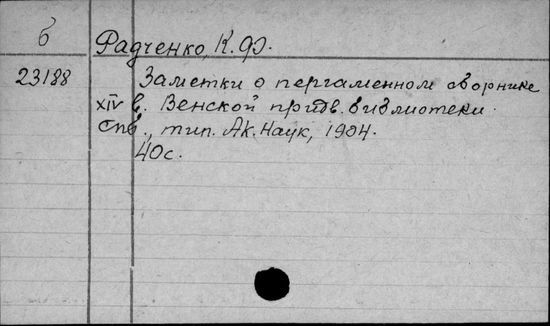 б
Радченко, К. Ф.
23188
Заметки о пергаменном сборнике
XIV в. Венской придв. библиотеки.
Спб., тип. Ак. Наук, 1904.
40с.